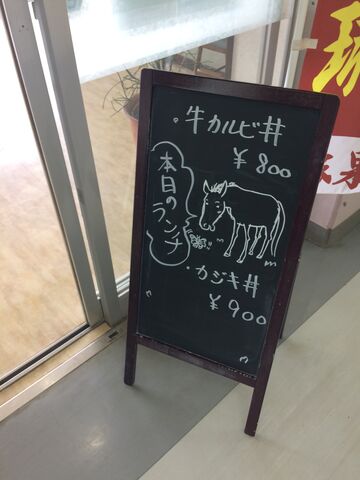 ・牛カルビ丼
￥800
本日のランチ
・カジキ丼
￥900